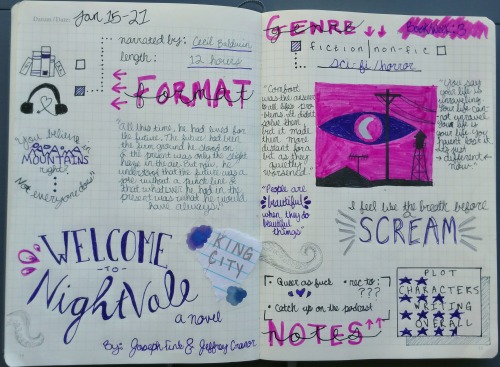 Jan 15-21
narrated by: Cecil Baldwin
length: 12 hours
FORMAT
format
"You believe
in
MOUNTAINS
right?
Not everyone does"
"All this time, he had lived for
the future. The future had been
the firm ground he stood on
the present was only the slight
haze in the air. But now he
understood that the future was a
joke without a punch line &
that whatever he had in the
present was what he would
have always."
WELCOME
-TO-
NightVale
a novel
By: Joseph Fink & Jeffrey Cranor
KING
CITY
GENRE
Book No: 3
fiction/non-fic
sci-fi/horror
"Comfort
was the answer
to all life's pro-
blems. It didn't
solve them,
but it made
them more
distant for a
bit as they
quietly
worsened."
"You say
your life is
unraveling.
Your life can
not unravel.
Your life is
your life. You
haven't lost it
its just
different
now."
"People are
beautiful
when they do
beautiful
things"
I feel like the breath before
a
SCREAM
Queer as fuck
rec to:
???
Catch up on the podcast
NOTES
notes
PLOT
CHARACTERS
WRITING
OVERALL